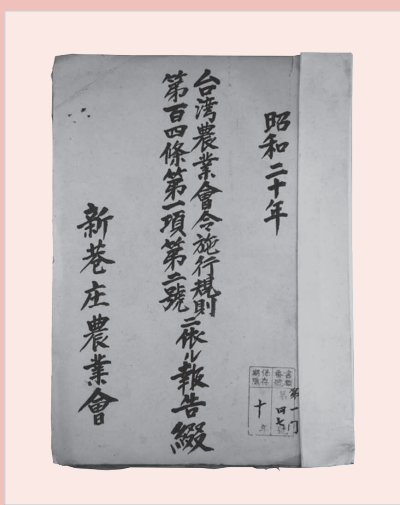 昭和二十年
台湾農業會令施行規則
第百四條第一項第二號ニ依ル報告綴
新巷庄農業會
第一門
第四七
保存期限
十年